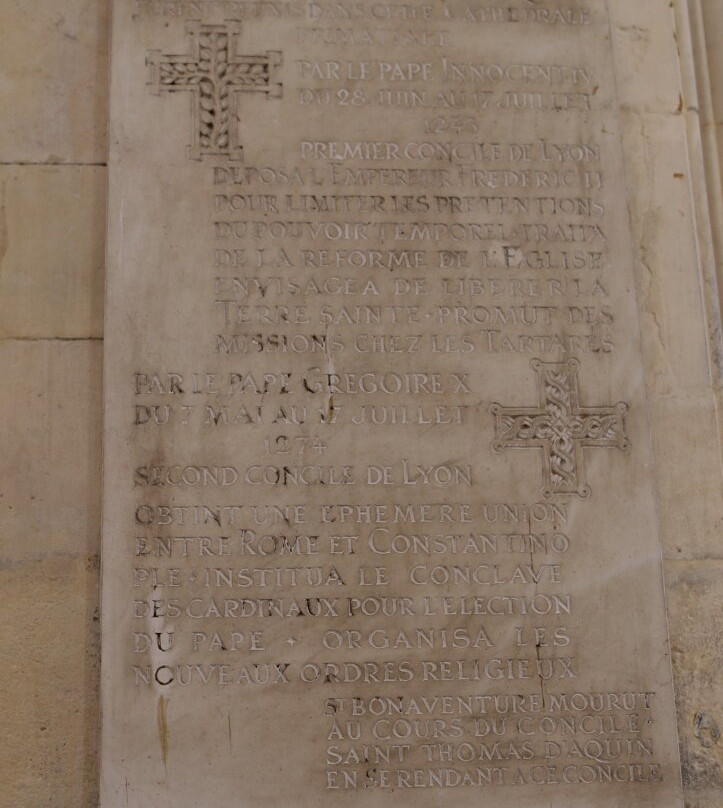 FURENT TENUS DANS CETTE CATHEDRALE
PRIMATIALE
PAR LE PAPE INNOCENT IV
DU 28 JUIN AU 17 JUILLET
1245
PREMIER CONCILE DE LYON
DEPOSA L'EMPEREUR FREDERIC II
POUR LIMITER LES PRETENTIONS
DU POUVOIR TEMPOREL · TRAITA
DE LA REFORME DE L'EGLISE
ENVISAGEA DE LIBERER LA
TERRE SAINTE · PROMUT DES
MISSIONS CHEZ LES TARTARES
PAR LE PAPE GREGOIRE X
DU 7 MAI AU 17 JUILLET
1274
SECOND CONCILE DE LYON
OBTINT UNE EPHEMERE UNION
ENTRE ROME ET CONSTANTINO
PLE · INSTITUA LE CONCLAVE
DES CARDINAUX POUR L'ELECTION
DU PAPE · ORGANISA LES
NOUVEAUX ORDRES RELIGIEUX
ST BONAVENTURE MOURUT
AU COURS DU CONCILE ·
SAINT THOMAS D'AQUIN
EN SE RENDANT A CE CONCILE